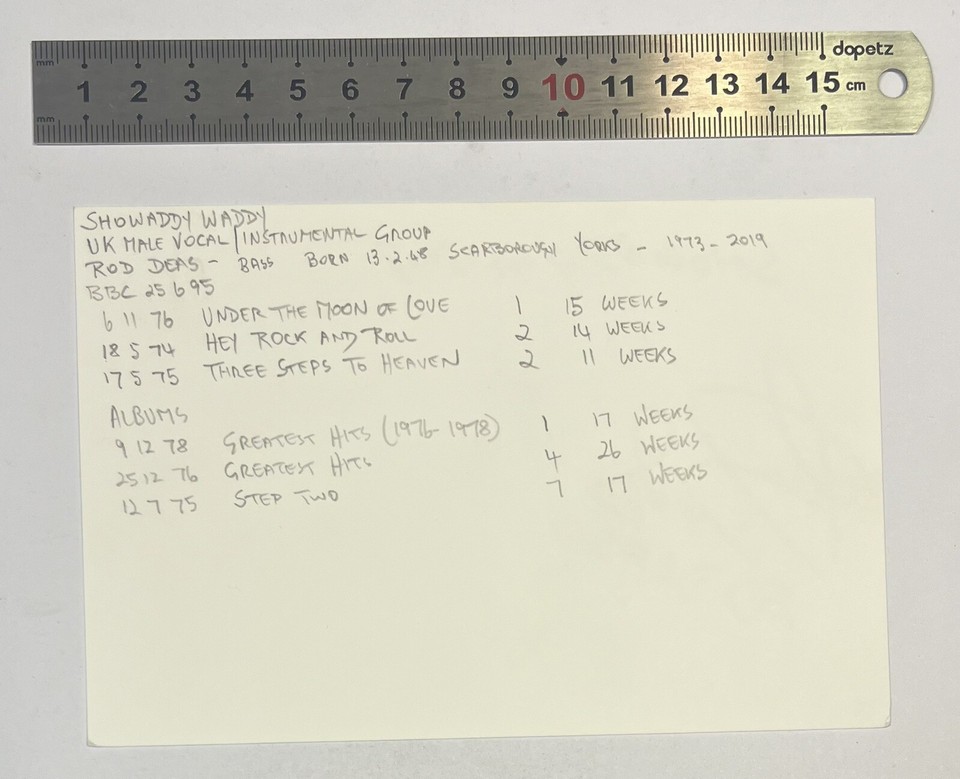 mm
dopetz
1 2 3 4 5 6 7 8 9 10 11 12 13 14 15 cm
mm
SHOWADDY WADDY
UK MALE VOCAL/INSTRUMENTAL GROUP
ROD DEAS - BASS BORN 13.2.48 SCARBOROUGH YORKS - 1973-2019
BBC 25 6 95
6 11 76 UNDER THE MOON OF LOVE 1 15 WEEKS
18 5 74 HEY ROCK AND ROLL 2 14 WEEKS
17 5 75 THREE STEPS TO HEAVEN 2 11 WEEKS
ALBUMS
9 12 78 GREATEST HITS (1976-1978) 1 17 WEEKS
25 12 76 GREATEST HITS 4 26 WEEKS
12 7 75 STEP TWO 7 17 WEEKS